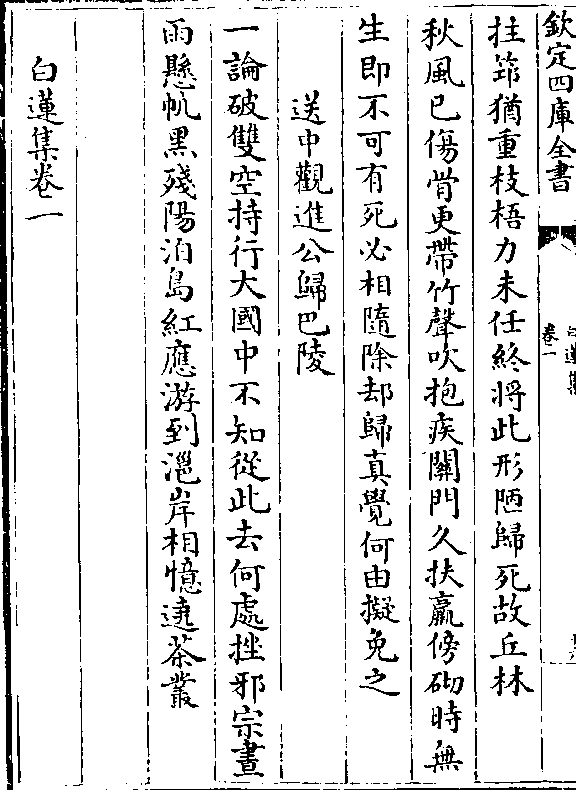 欽定四庫全書
白蓮集
卷一
拄笻猶重枝梧力未任終將此形陋歸死故丘林
秋風已傷骨更帶竹聲吹抱疾關門久扶羸傍砌時無
生即不可有死必相隨除却歸真覺何由擬免之
送中觀進公歸巴陵
一論破雙空持行大國中不知從此去何處挫邪宗晝
雨懸帆黑殘陽泊島紅應游到灉岸相憶遶茶叢
白蓮集卷一